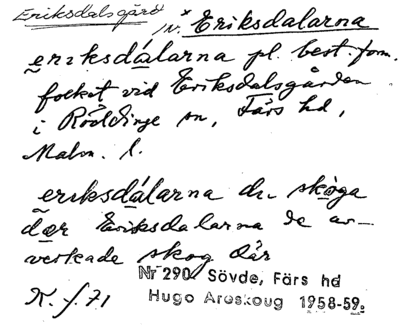 Eriksdalsgård
/N. × Eriksdalarna
eriksdalarna pl. best. form.
folket vid Eriksdalsgården
i Röddinge sn, Färs hd,
Malm. l.
eriksdalarna du skoga
dær Eriksdalarna de av-
verkade skog där
Nr 290 Sövde, Färs hd
K. f. 71
Hugo Areskoug 1958-59.